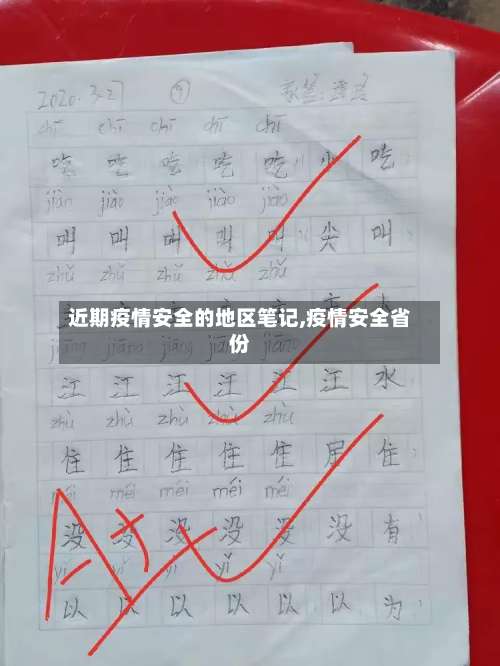 2020.3.27 ⑨
chī chī chī chī chī
吃 吃 吃 吃 吃 小 吃
jiào jiào jiào jiào jiào
叫 叫 叫 叫 叫 尖 叫
zhǔ zhǔ zhǔ zhǔ zhǔ
近期疫情安全的地区笔记,疫情安全省
份
jiāng jiāng jiāng
江 江 江 江 江 江 水
zhù zhù zhù zhù zhù
住 住 住 住 住 居 住
méi méi méi méi méi
没 没 没 没 没 没 有
yǐ yǐ yǐ yǐ yǐ
以 以 以 以 以 以 为
A+